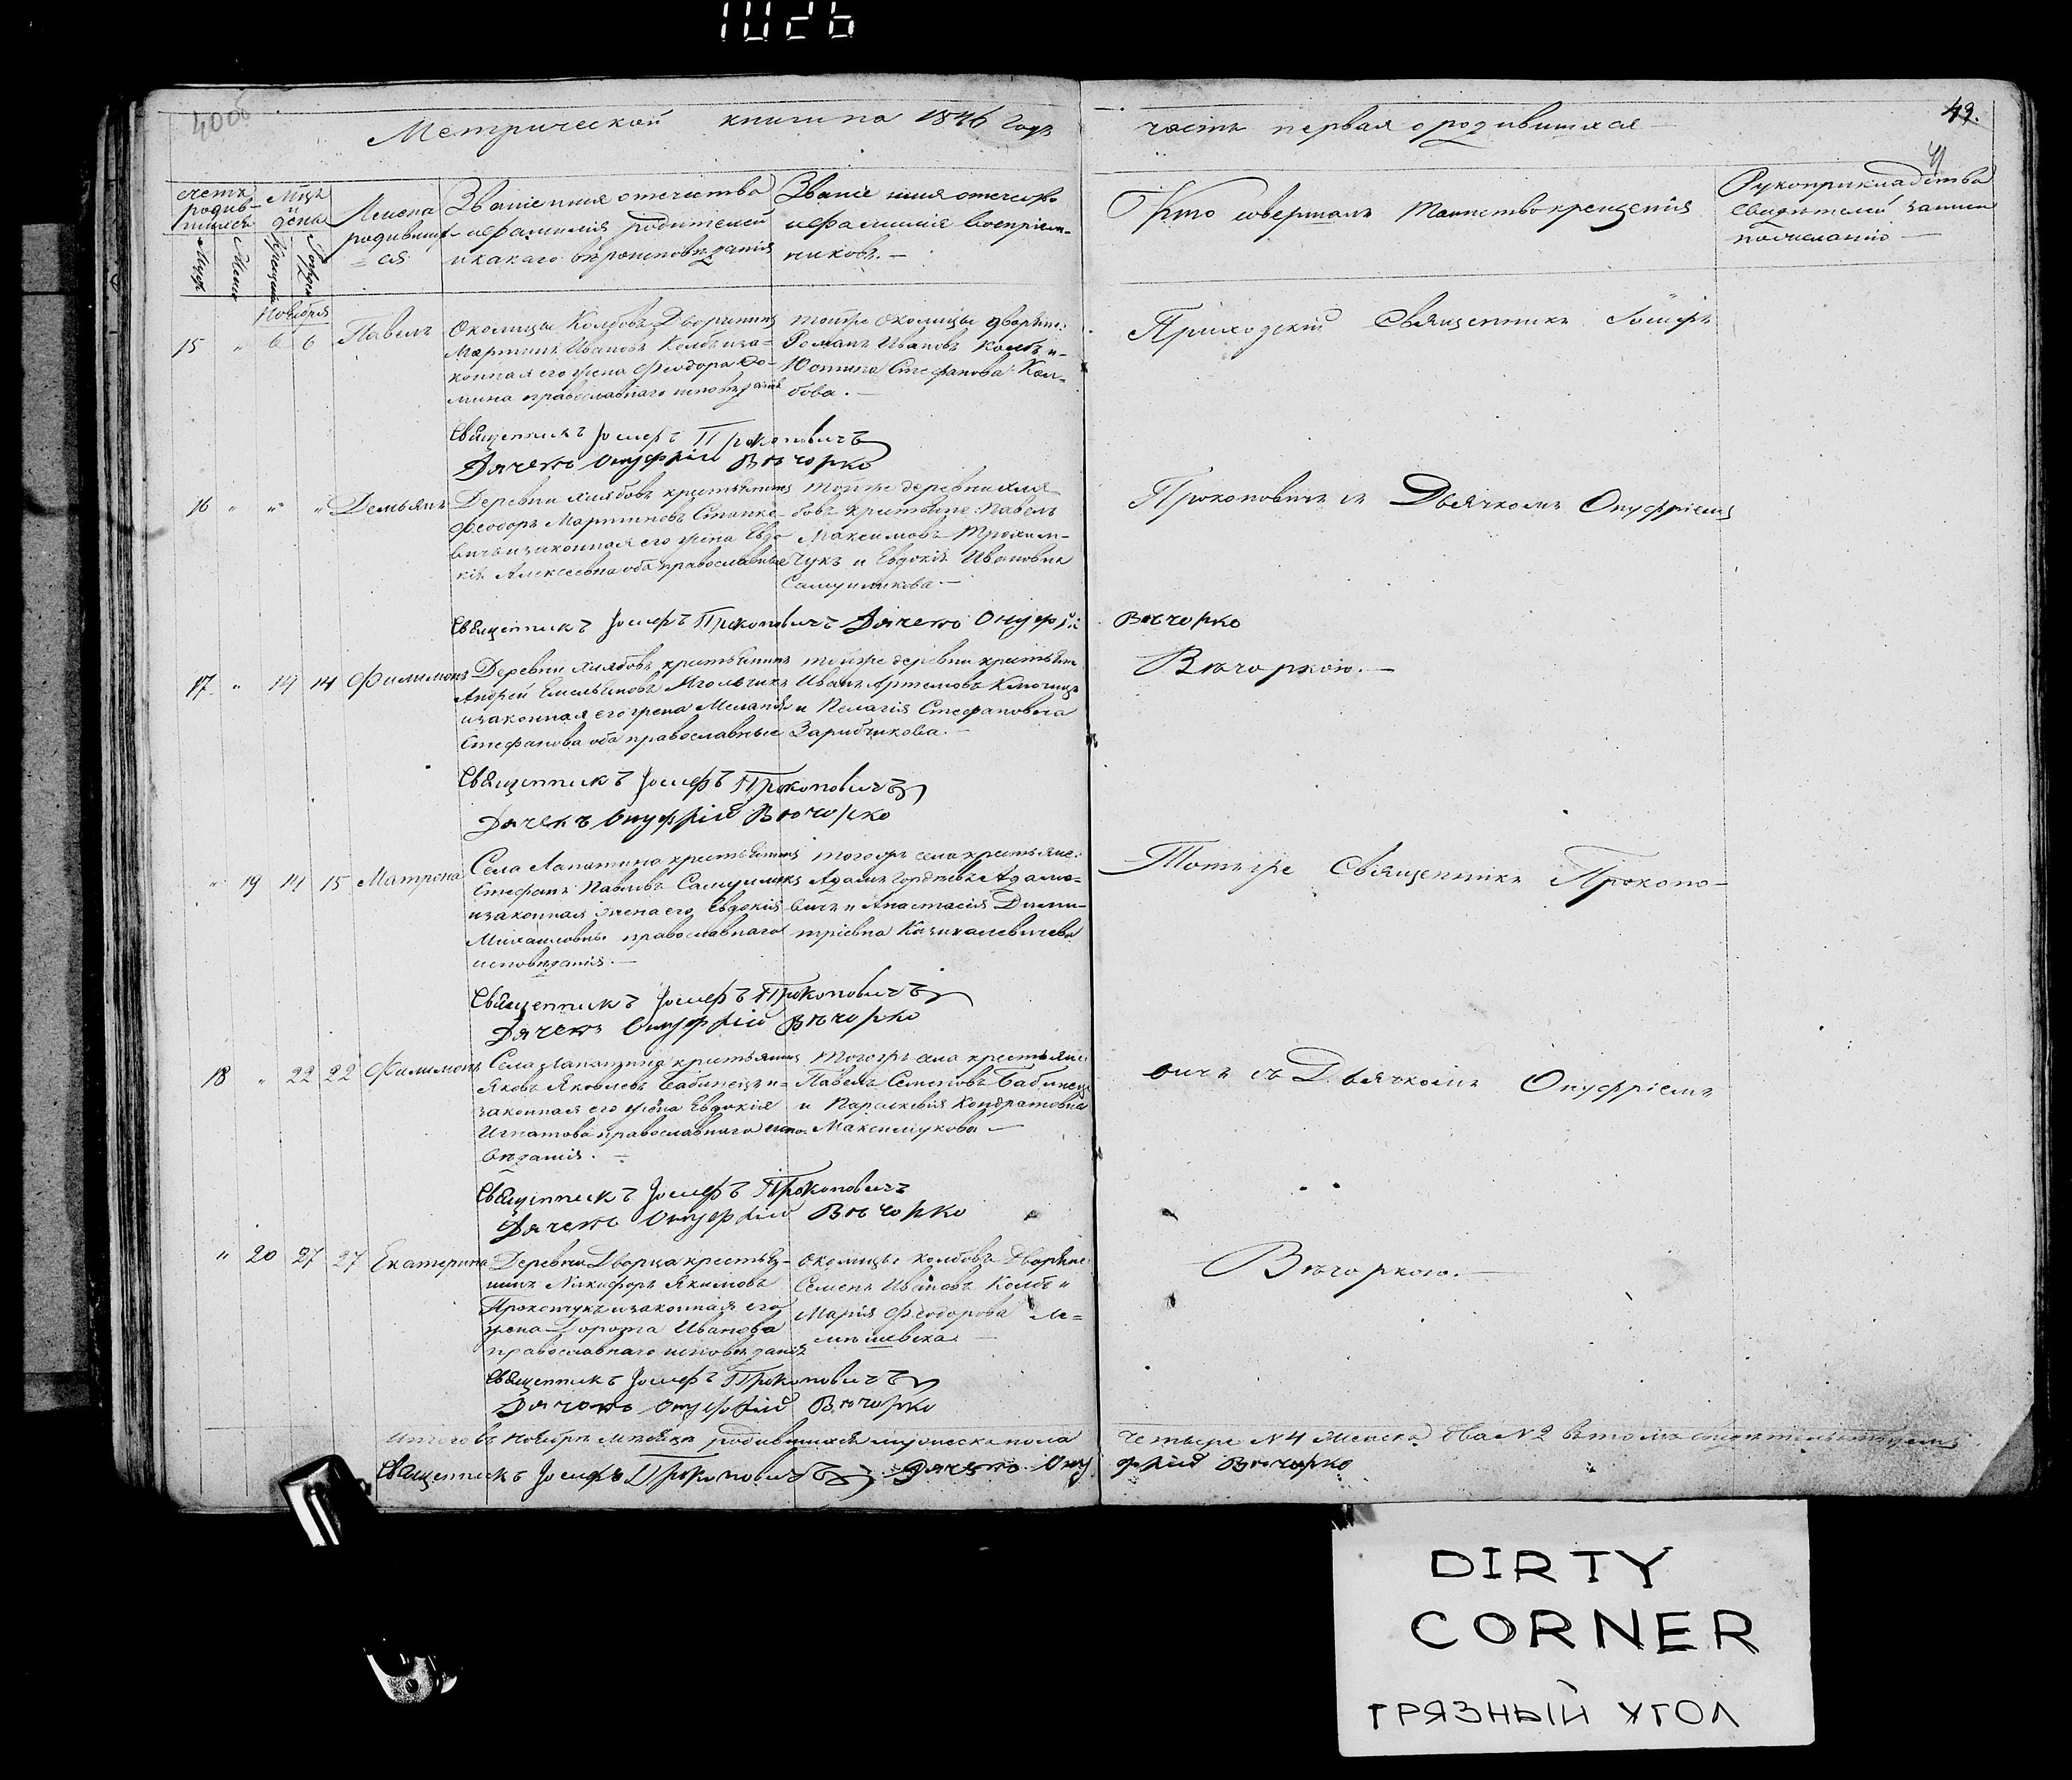 1026
Метрической книги на 1846 годъ
часть первая о родившихся
49.
счетъ родив-шихся
Мѣсяцъ и день
Имена родивших-ся
Званіе имя отечество и фамилія родителей и какаго вѣроисповѣданія
Званіе имя отечество и фамиліе воспріем-никовъ.
Кто совершалъ таинство крещенія
Рукоприкладство свидѣтелей записи по желанію
Ноября
15 " 6 6 Павелъ
Околицы Колбовъ Дворянинъ
Мартинъ Ивановъ Колбъ и за-
конная его жена Феодора Фо-
мина православнаго исповѣданія
тойже околицы дворяне:
Романъ Ивановъ Колбъ и
Юстина Стефанова Кол-
бова.
Приходскій Священникъ Іосифъ
Священникъ Іосифъ Прокоповичъ
Дячекъ Онуфрій Вѣчорко
16 " " " Демьянъ
Деревни Хлябовъ крестьянинъ
Феодоръ Мартиновъ Станке-
вичъ и законная его жена Евдо-
кія Алексеевна оба православные
тойже деревни Хля-
бовъ крестьяне: Павелъ
Максимовъ Трохим-
чукъ и Евдокія Ивановна
Самуиликова.
Прокоповичъ съ Дьячкомъ Онуфріемъ
Священникъ Іосифъ Прокоповичъ Дячекъ Онуфрій Вѣчорко
17 " 14 14 Филимонъ
Деревни Хлябовъ крестьянинъ
Андрей Емельяновъ
и законная его жена Меланія
Стефанова оба православные
тойже деревни крестьяне
Иванъ Артемовъ
и Пелагія Стефановна
Вѣчоркою.
Священникъ Іосифъ Прокоповичъ
Дячекъ Онуфрій Вѣчорко
" 19 14 15 Матрена
Села Лапатина крестьянинъ
Стефанъ Павловъ Самуиликъ
и законная жена его Евдокія
Михаиловна православнаго
исповѣданія.
тогожъ села крестьяне:
Адамъ Гордѣевъ Адамо-
вичъ и Анастасія Дими-
тріевна
Тотъже Священникъ Прокопо-
Священникъ Іосифъ Прокоповичъ
Дячекъ Онуфрій Вѣчорко
18 " 22 22 Филимонъ
Села Лапатина крестьянинъ
Яковъ Яковлевъ Бабинецъ и
законная его жена Евдокія
Игнатова православнаго испо-
вѣданія.
тогожъ села крестьяне
Павелъ Семеновъ Бабинецъ
и Параскевія Кондратовна
Максимукова
вичъ съ Дьячкомъ Онуфріемъ
Священникъ Іосифъ Прокоповичъ
Дячекъ Онуфрій Вѣчорко
" 20 27 27 Екатерина
Деревни Дворца крестья-
нинъ Никифоръ Якимовъ
и законная его
жена Дорота Иванова
православнаго исповѣданія
околицы Колбовъ Дворяне
Семенъ Ивановъ Колбъ и
Марія Феодорова
Вѣчоркою.
Священникъ Іосифъ Прокоповичъ
Дячекъ Онуфрій Вѣчорко
Итого въ Ноябрѣ мѣсяцѣ родившихся мужеска пола четыре N 4 женска два N 2 въ томъ свидѣтельствуемъ
Священникъ Іосифъ Прокоповичъ Дячекъ Онуфрій Вѣчорко
DIRTY
CORNER
ГРЯЗНЫЙ УГОЛ